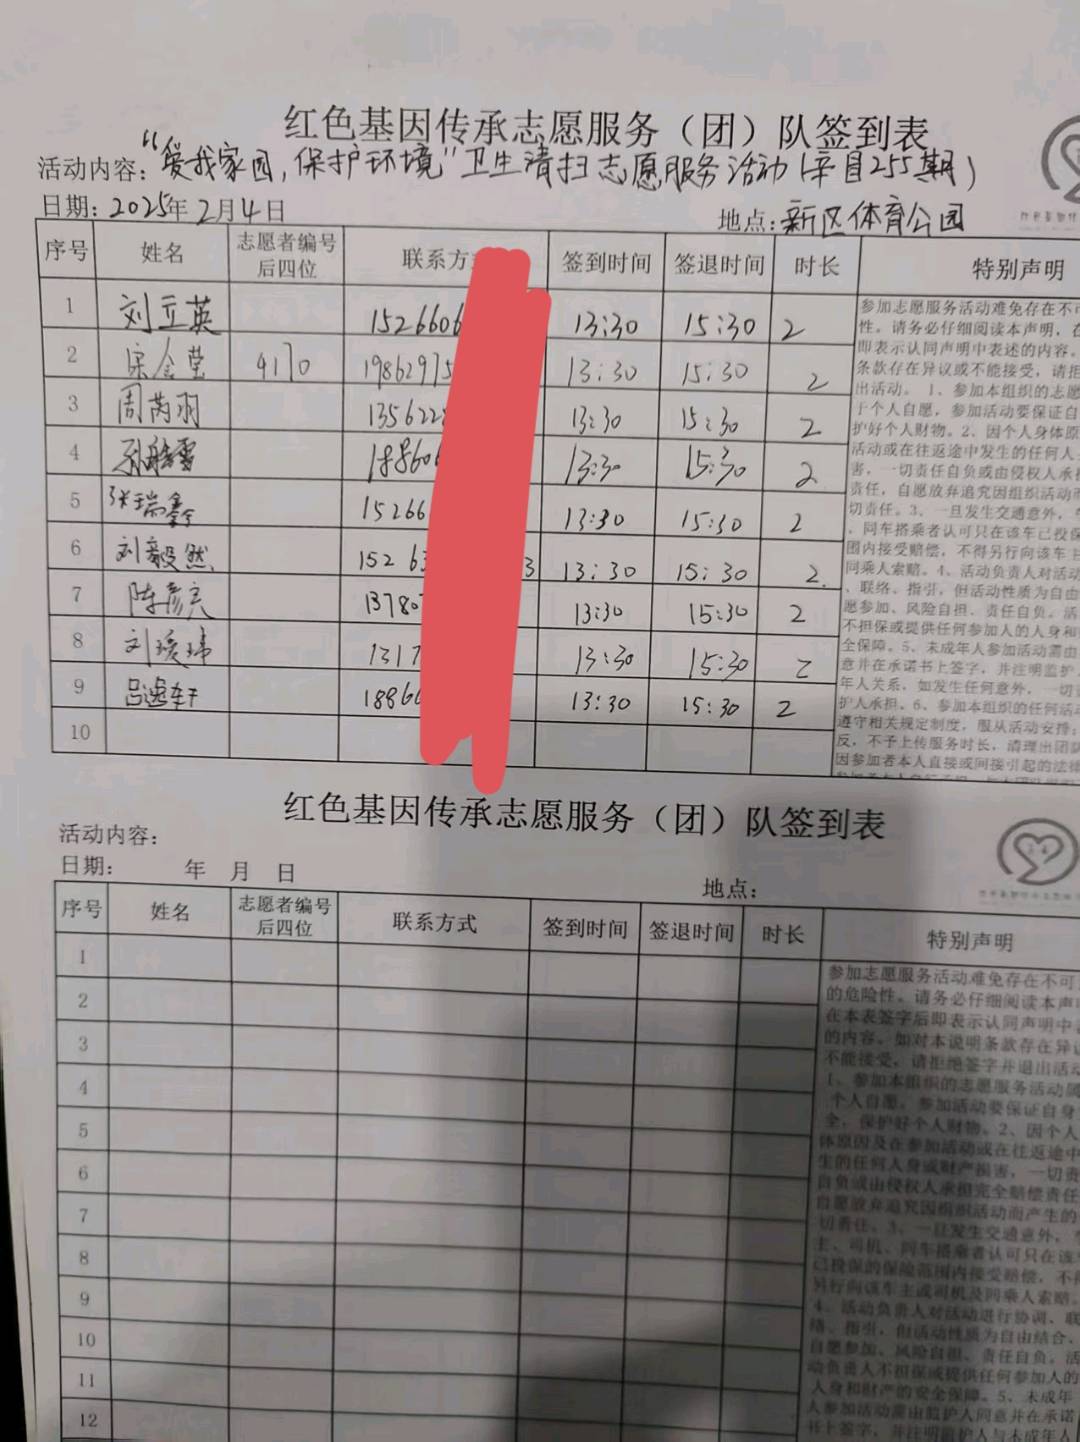 红色基因传承志愿服务（团）队签到表
活动内容："爱我家园，保护环境"卫生清扫志愿服务活动（辛自255期）
日期：2025年2月4日 地点：新区体育公园
序号 姓名 志愿者编号后四位 联系方式 签到时间 签退时间 时长 特别声明
1 刘立英 1526606 13:30 15:30 2
2 宋金莹 4170 1986297 13:30 15:30 2
3 周芮羽 135622 13:30 15:30 2
4 18860 13:30 15:30 2
5 张瑞鑫 15266 13:30 15:30 2
6 刘毅然 152 63 3 13:30 15:30 2
7 陈彦亮 13780 13:30 15:30 2
8 刘瑷玮 1317 13:30 15:30 2
9 吕逸轩 1886 13:30 15:30 2
10
参加志愿服务活动难免存在不可
性。请务必仔细阅读本声明，在
即表示认同声明中表述的内容。
条款存在异议或不能接受，请拒
出活动。 1、参加本组织的志愿
于个人自愿，参加活动要保证自
护好个人财物。2、因个人身体原
活动或在往返途中发生的任何人
害，一切责任自负或由侵权人承担
责任，自愿放弃追究因组织活动而
切责任。3、一旦发生交通意外，
，同车搭乘者认可只在该车已投保
围内接受赔偿，不得另行向该车主
同乘人索赔。4、活动负责人对活动
、联络、指引，但活动性质为自由
愿参加、风险自担、责任自负。活
不担保或提供任何参加人的人身和
全保障。5、未成年人参加活动需由
意并在承诺书上签字，并注明监护
年人关系，如发生任何意外，一切
护人承担。6、参加本组织的任何活
遵守相关规定制度，服从活动安排；
反，不予上传服务时长，清理出团队
因参加者本人直接或间接引起的法律
红色基因传承志愿服务（团）队签到表
活动内容：
日期： 年 月 日 地点：
序号 姓名 志愿者编号后四位 联系方式 签到时间 签退时间 时长 特别声明
1
2
3
4
5
6
7
8
9
10
11
12
参加志愿服务活动难免存在不可
的危险性。请务必仔细阅读本声明
在本表签字后即表示认同声明中
的内容。如对本说明条款存在异议
不能接受，请拒绝签字并退出活动
1、参加本组织的志愿服务活动属
个人自愿，参加活动要保证自身
全，保护好个人财物。2、因个人
体原因及在参加活动或在往返途中
生的任何人身或财产损害，一切责
自负或由侵权人承担完全赔偿责任
自愿放弃追究因组织活动而产生的
切责任。3、一旦发生交通意外，
主、司机、同车搭乘者认可只在该
已投保的保险范围内接受赔偿，不
另行向该车主或司机及同乘人索赔。
4、活动负责人对活动进行协调、联
络、指引，但活动性质为自由结合、
自愿参加、风险自担、责任自负。活
动负责人不担保或提供任何参加人的
人身和财产的安全保障。5、未成年
人参加活动需由监护人同意并在承诺
书上签字，并注明监护人与未成年人